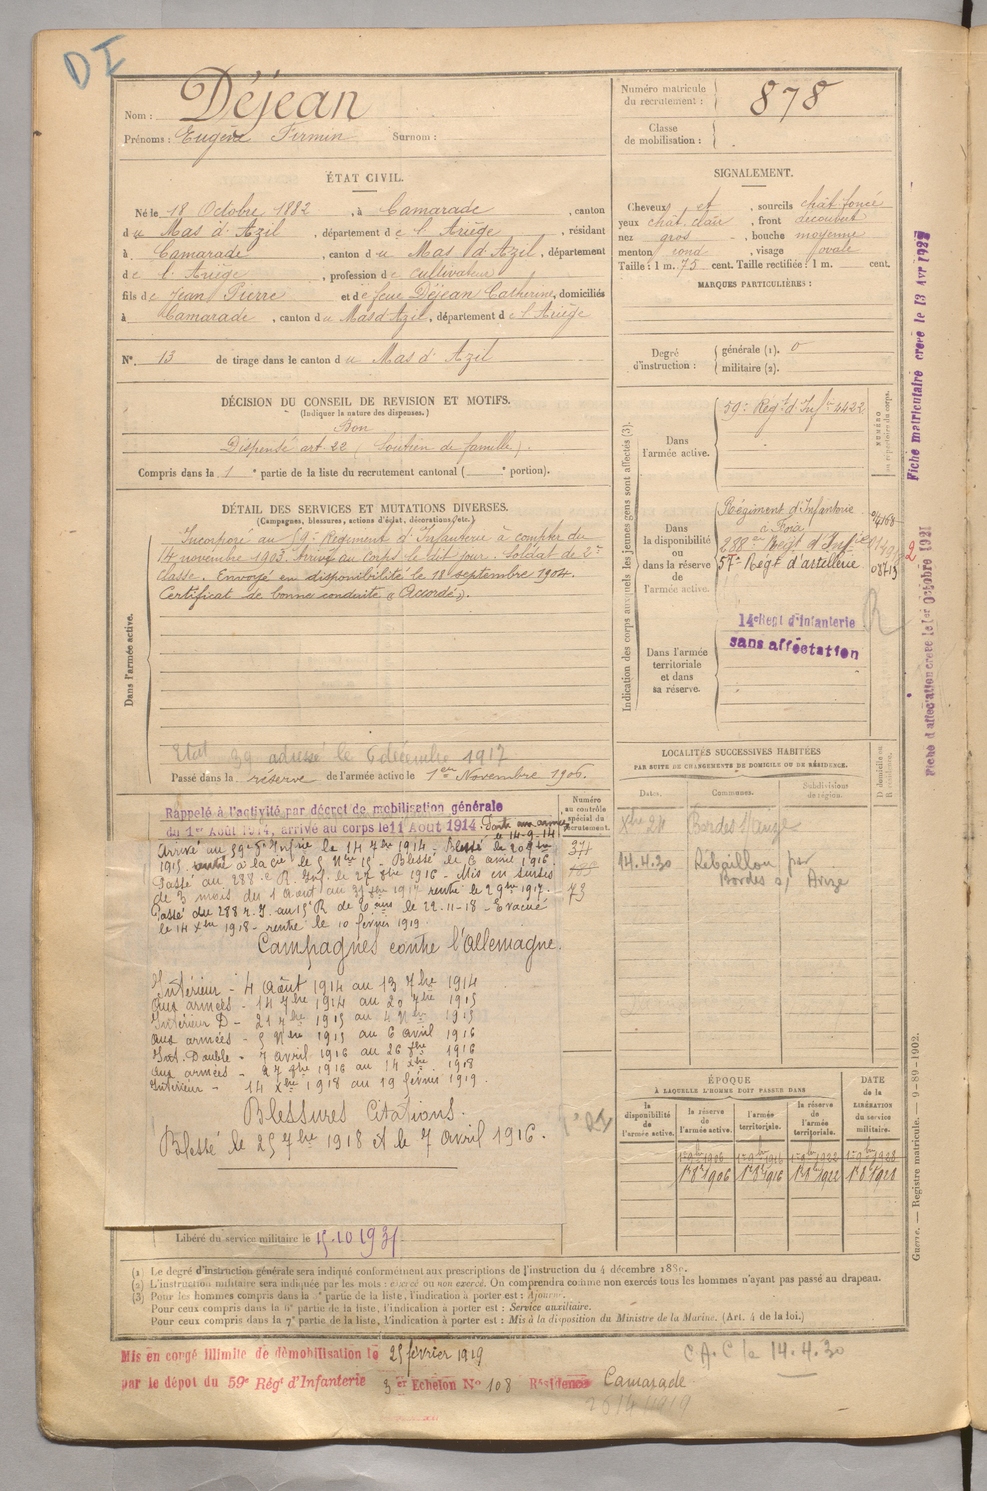 DI
Nom : Déjean
Prénoms : Eugène Firmin Surnom :
Numéro matricule du recrutement : 878
Classe de mobilisation :
ÉTAT CIVIL.
Né le 18 Octobre 1882, à Camarade, canton
du Mas d'Azil, département de l'Ariège, résidant
à Camarade, canton du Mas d'Azil, département
de l'Ariège, profession de cultivateur
fils de Jean Pierre et de feue Déjean Catherine, domiciliés
à Camarade, canton du Mas d'Azil, département de l'Ariège
N° 13 de tirage dans le canton du Mas d'Azil
SIGNALEMENT.
Cheveux et, sourcils chât foncé
yeux chât. clair, front découvert
nez gros, bouche moyenne
menton rond, visage ovale
Taille : 1 m. 75 cent. Taille rectifiée : 1 m. cent.
MARQUES PARTICULIÈRES :
Degré d'instruction : générale (1). 0
militaire (2).
DÉCISION DU CONSEIL DE REVISION ET MOTIFS.
(Indiquer la nature des dispenses.)
Bon
Dispensé art. 22 (Soutien de famille).
Compris dans la 1e partie de la liste du recrutement cantonal (e portion).
DÉTAIL DES SERVICES ET MUTATIONS DIVERSES.
(Campagnes, blessures, actions d'éclat, décorations, etc.)
Dans l'armée active.
Incorporé au 59e Régiment d'Infanterie à compter du
14 novembre 1903. Arrivé au corps le dit jour. Soldat de 2e
classe. Envoyé en disponibilité le 18 septembre 1904.
Certificat de bonne conduite "Accordé".
Etat 39 adressé le 6 décembre 1917
Passé dans la réserve de l'armée active le 1er Novembre 1906.
Indication des corps auxquels les jeunes gens sont affectés (3).
NUMÉRO au répertoire du corps.
Dans l'armée active.
59e Régt d'Infie 4422
Dans la disponibilité ou dans la réserve de l'armée active.
Régiment d'Infanterie
à Foix
288e Regt d'Infie
57e Regt d'artillerie
Dans l'armée territoriale et dans sa réserve.
14e Regt d'infanterie
sans affectation
Fiche matriculaire creve le 13 Avr
Fiche d'affectation creve le 1er Octobre 1921
LOCALITÉS SUCCESSIVES HABITÉES
PAR SUITE DE CHANGEMENTS DE DOMICILE OU DE RÉSIDENCE.
Dates. Communes. Subdivisions de région. D domicile ou R résidence.
Xbre 24 Bordes s/Arize
14.4.30 Rébaillou par
Bordes s/ Arize
Rappelé à l'activité par décret de mobilisation générale
du 1er Août 1914, arrivé au corps le 11 Aout 1914. Parti aux armées
le 14-9-14
Numéro au contrôle spécial du recrutement.
73
Arrivé au 59e d'Infrie le 14 7bre 1914 - Blessé le 20 7bre
1915 rentré à la Cie le 5 Nbre 15 - Blessé le 6 avril 1916.
Passé au 288e R. Inf. le 27 8bre 1916 - Mis en sursis
de 3 mois du 1 Aout au 31 8bre 1917 rentré le 2 9bre 1917.
Passé du 288 R.I. au 15 R de le 22-11-18 - Evacué
le 14 Xbre 1918 - rentré le 10 février 1919
Campagnes contre l'Allemagne.
Intérieur - 4 Août 1914 au 13 7bre 1914
Aux armées - 14 7bre 1914 au 20 7bre 1915
Intérieur D - 21 7bre 1915 au 4 Nbre 1915
Aux armées - 5 Nbre 1915 au 6 avril 1916
Int. Double - 7 avril 1916 au 26 8bre 1916
Aux armées - 27 8bre 1916 au 14 Xbre 1918
Intérieur - 14 Xbre 1918 au 19 février 1919.
Blessures Citations.
Blessé le 25 7bre 1918 et le 7 avril 1916.
ÉPOQUE
À LAQUELLE L'HOMME DOIT PASSER DANS
la disponibilité de l'armée active. la réserve de l'armée active. l'armée territoriale. la réserve de l'armée territoriale. DATE de la LIBÉRATION du service militaire.
1er 9bre 1906 1er 9bre 1916 1er 9bre 1922 1er 9bre 1928
1er 8bre 1906 1er 8bre 1916 1er 8bre 1922 1er 8bre 1928
Libéré du service militaire le 15.10.1931
(1) Le degré d'instruction générale sera indiqué conformément aux prescriptions de l'instruction du 4 décembre 1889.
(2) L'instruction militaire sera indiquée par les mots : exercé ou non exercé. On comprendra comme non exercés tous les hommes n'ayant pas passé au drapeau.
(3) Pour les hommes compris dans la 5e partie de la liste, l'indication à porter est : Ajourné.
Pour ceux compris dans la 6e partie de la liste, l'indication à porter est : Service auxiliaire.
Pour ceux compris dans la 7e partie de la liste, l'indication à porter est : Mis à la disposition du Ministre de la Marine. (Art. 4 de la loi.)
Guerre. — Registre matricule. — 9-89-1902.
Mis en congé illimité de démobilisation le 25 février 1919
par le dépot du 59e Régt d'Infanterie 3er Echelon N° 108 Résidence Camarade
C.A.C le 14.4.30